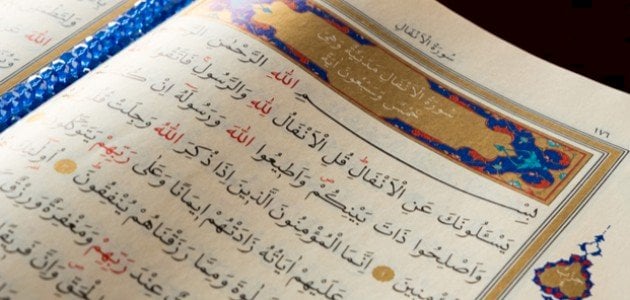 سُورَةُ الْاَنْفَالِ
١٧٦
سُورَةُ الْاَنْفَالِ مَدَنِيَّةٌ وَهِىَ
خَمْسٌ وَسَبْعُونَ اٰيَةً
بِسْمِ اللّٰهِ الرَّحْمٰنِ
يَسْـَٔلُونَكَ عَنِ الْاَنْفَالِ قُلِ الْاَنْفَالُ لِلّٰهِ وَالرَّسُولِ فَاتَّقُوا
وَاَصْلِحُوا ذَاتَ بَيْنِكُمْ وَاَطِيعُوا اللّٰهَ وَرَسُولَهُ اِنْ
اِنَّمَا الْمُؤْمِنُونَ الَّذِينَ اِذَا ذُكِرَ اللّٰهُ وَجِلَتْ
عَلَيْهِمْ اٰيَاتُهُ زَادَتْهُمْ اِيمَانًا وَعَلٰى رَبِّهِمْ يَتَوَكَّلُونَ
وَمِمَّا رَزَقْنَاهُمْ يُنْفِقُونَ
عِنْدَ رَبِّهِمْ وَمَغْفِرَةٌ وَرِزْقٌ
الْحَقِّ وَاِنَّ فَرِيقًا
حزب
اللّٰه